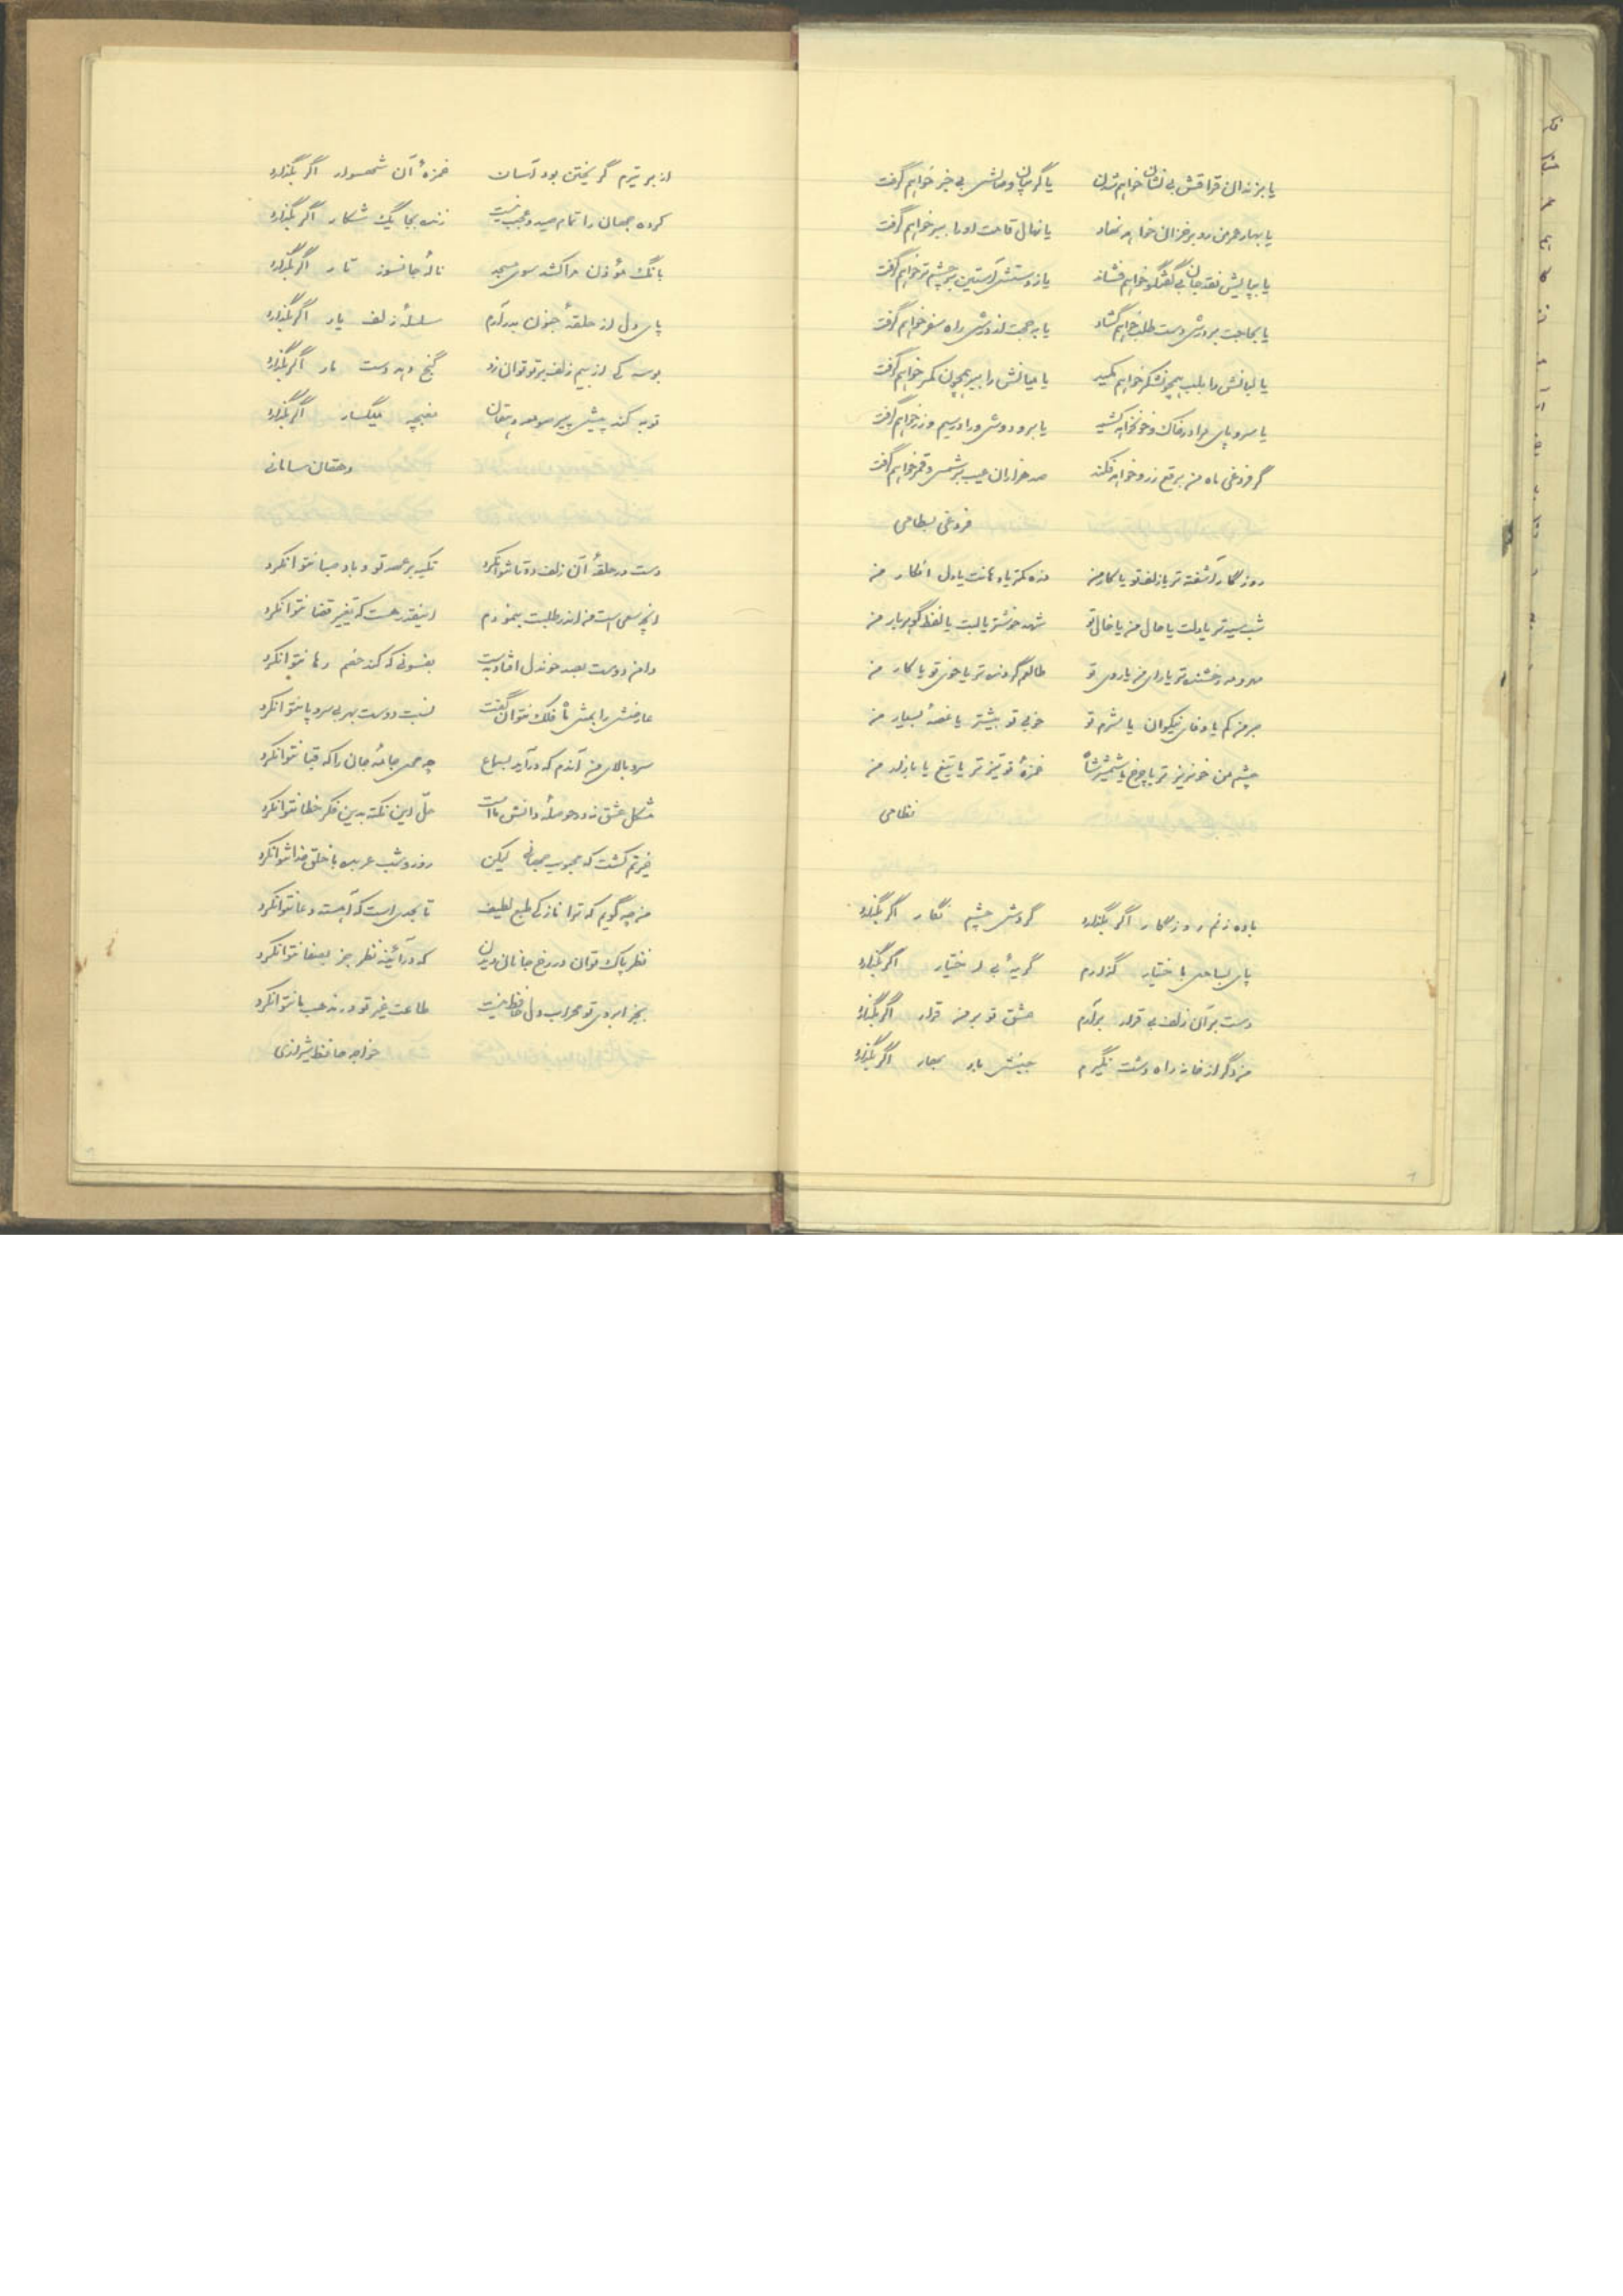 یا بزندان فراقش بی نشان خواهم شدن یا گریبان وصالش بی خبر خواهم گرفت
یا بهار عمر من رو بر خزان خواهد نهاد یا نهال قامت او را ببر خواهم گرفت
یا بپایش نقد جان بی گفتگو خواهم فشاند یا ز دستش آستین بر چشم تر خواهم گرفت
یا بحاجت بر درش دست طلب خواهم گشاد یا بحجت از درش راه سفر خواهم گرفت
یا لبانش را بلب همچون شکر خواهم مکید یا میانش را ببر همچون کمر خواهم گرفت
یا سر و پای مرا در خاک و خون خواهد کشید یا بر و دوش ورا در سیم و زر خواهم گرفت
گر فروغی ماه من برقع ز رو خواهد فکند صد هزاران عیب بر شمس و قمر خواهم گرفت
فروغی بسطامی
روزگار آشفته تر یا زلف تو یا کار من ذره کمتر یا دهانت یا دل افکار من
شب سیه تر یا دلت یا حال من یا خال تو شهد خوشتر یا لبت یا لفظ گوهر بار من
مهر و مه رخشنده تر یا رای من یا روی تو طالع گردنده تر یا خوی تو یا کار من
مهر من کم یا وفای نیکوان یا شرم تو خوبی تو بیشتر یا غصهٔ بسیار من
چشم من خونریز تر یا چرخ یا شمشیر شاه غمزهٔ تو تیز تر یا تیغ یا بازار من
نظامی
باده زنم روزگار اگر بگذارد گردش چشم نگار اگر بگذارد
پای بساحل باختیار گذارم گریهٔ بی اختیار اگر بگذارد
دست بر آن زلف بی قرار برآرم عشق تو بر من قرار اگر بگذارد
من دگر از خانه راه دشت نگیرم جنبش باد بهار اگر بگذارد
از بر تیرم گریختن بود آسان غمزهٔ آن شهسوار اگر بگذارد
کرده جهان را تمام صید و عجب نیست زنده بجا یک شکار اگر بگذارد
بانگ مؤذن مرا کشد سوی مسجد نالهٔ جانسوز تار اگر بگذارد
پای دل از حلقهٔ جنون بدر آرم سلسلهٔ زلف یار اگر بگذارد
بوسه کی از بیم زلف بر تو توان زد گنج دهد دست مار اگر بگذارد
توبه کند پیش پیر صومعه دهقان مغبچه میگسار اگر بگذارد
دهقان سامانی
دست در حلقهٔ آن زلف دو تا نتوانکرد تکیه بر عهد تو و باد صبا نتوانکرد
آنچه سعی است من اندر طلبت بنمودم اینقدر هست که تغییر قضا نتوانکرد
دامن دوست بصد خوندل افتاد بدست بفسونی که کند خصم رها نتوانکرد
عارضش را بمثل ماه فلک نتوان گفت نسبت دوست بهر بی سر و پا نتوانکرد
سرو بالای من آندم که درآید بسماع چه محل جامهٔ جان را که قبا نتوانکرد
مشکل عشق نه در حوصلهٔ دانش ماست حل این نکته بدین فکر خطا نتوانکرد
غیرتم کشت که محبوب جهانی لیکن روز و شب عربده با خلق خدا نتوانکرد
من چه گویم که ترا نازکی طبع لطیف تا بحدی است که آهسته دعا نتوانکرد
نظر پاک توان در رخ جانان دیدن که در آئینه نظر جز بصفا نتوانکرد
بجز ابروی تو محراب دل حافظ نیست طاعت غیر تو در مذهب ما نتوانکرد
خواجه حافظ شیرازی